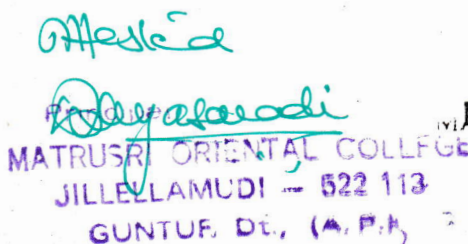 Attested
Principal
MATRUSRI ORIENTAL COLLEGE
JILLELLAMUDI - 522 113
GUNTUR Dt., (A. P.)